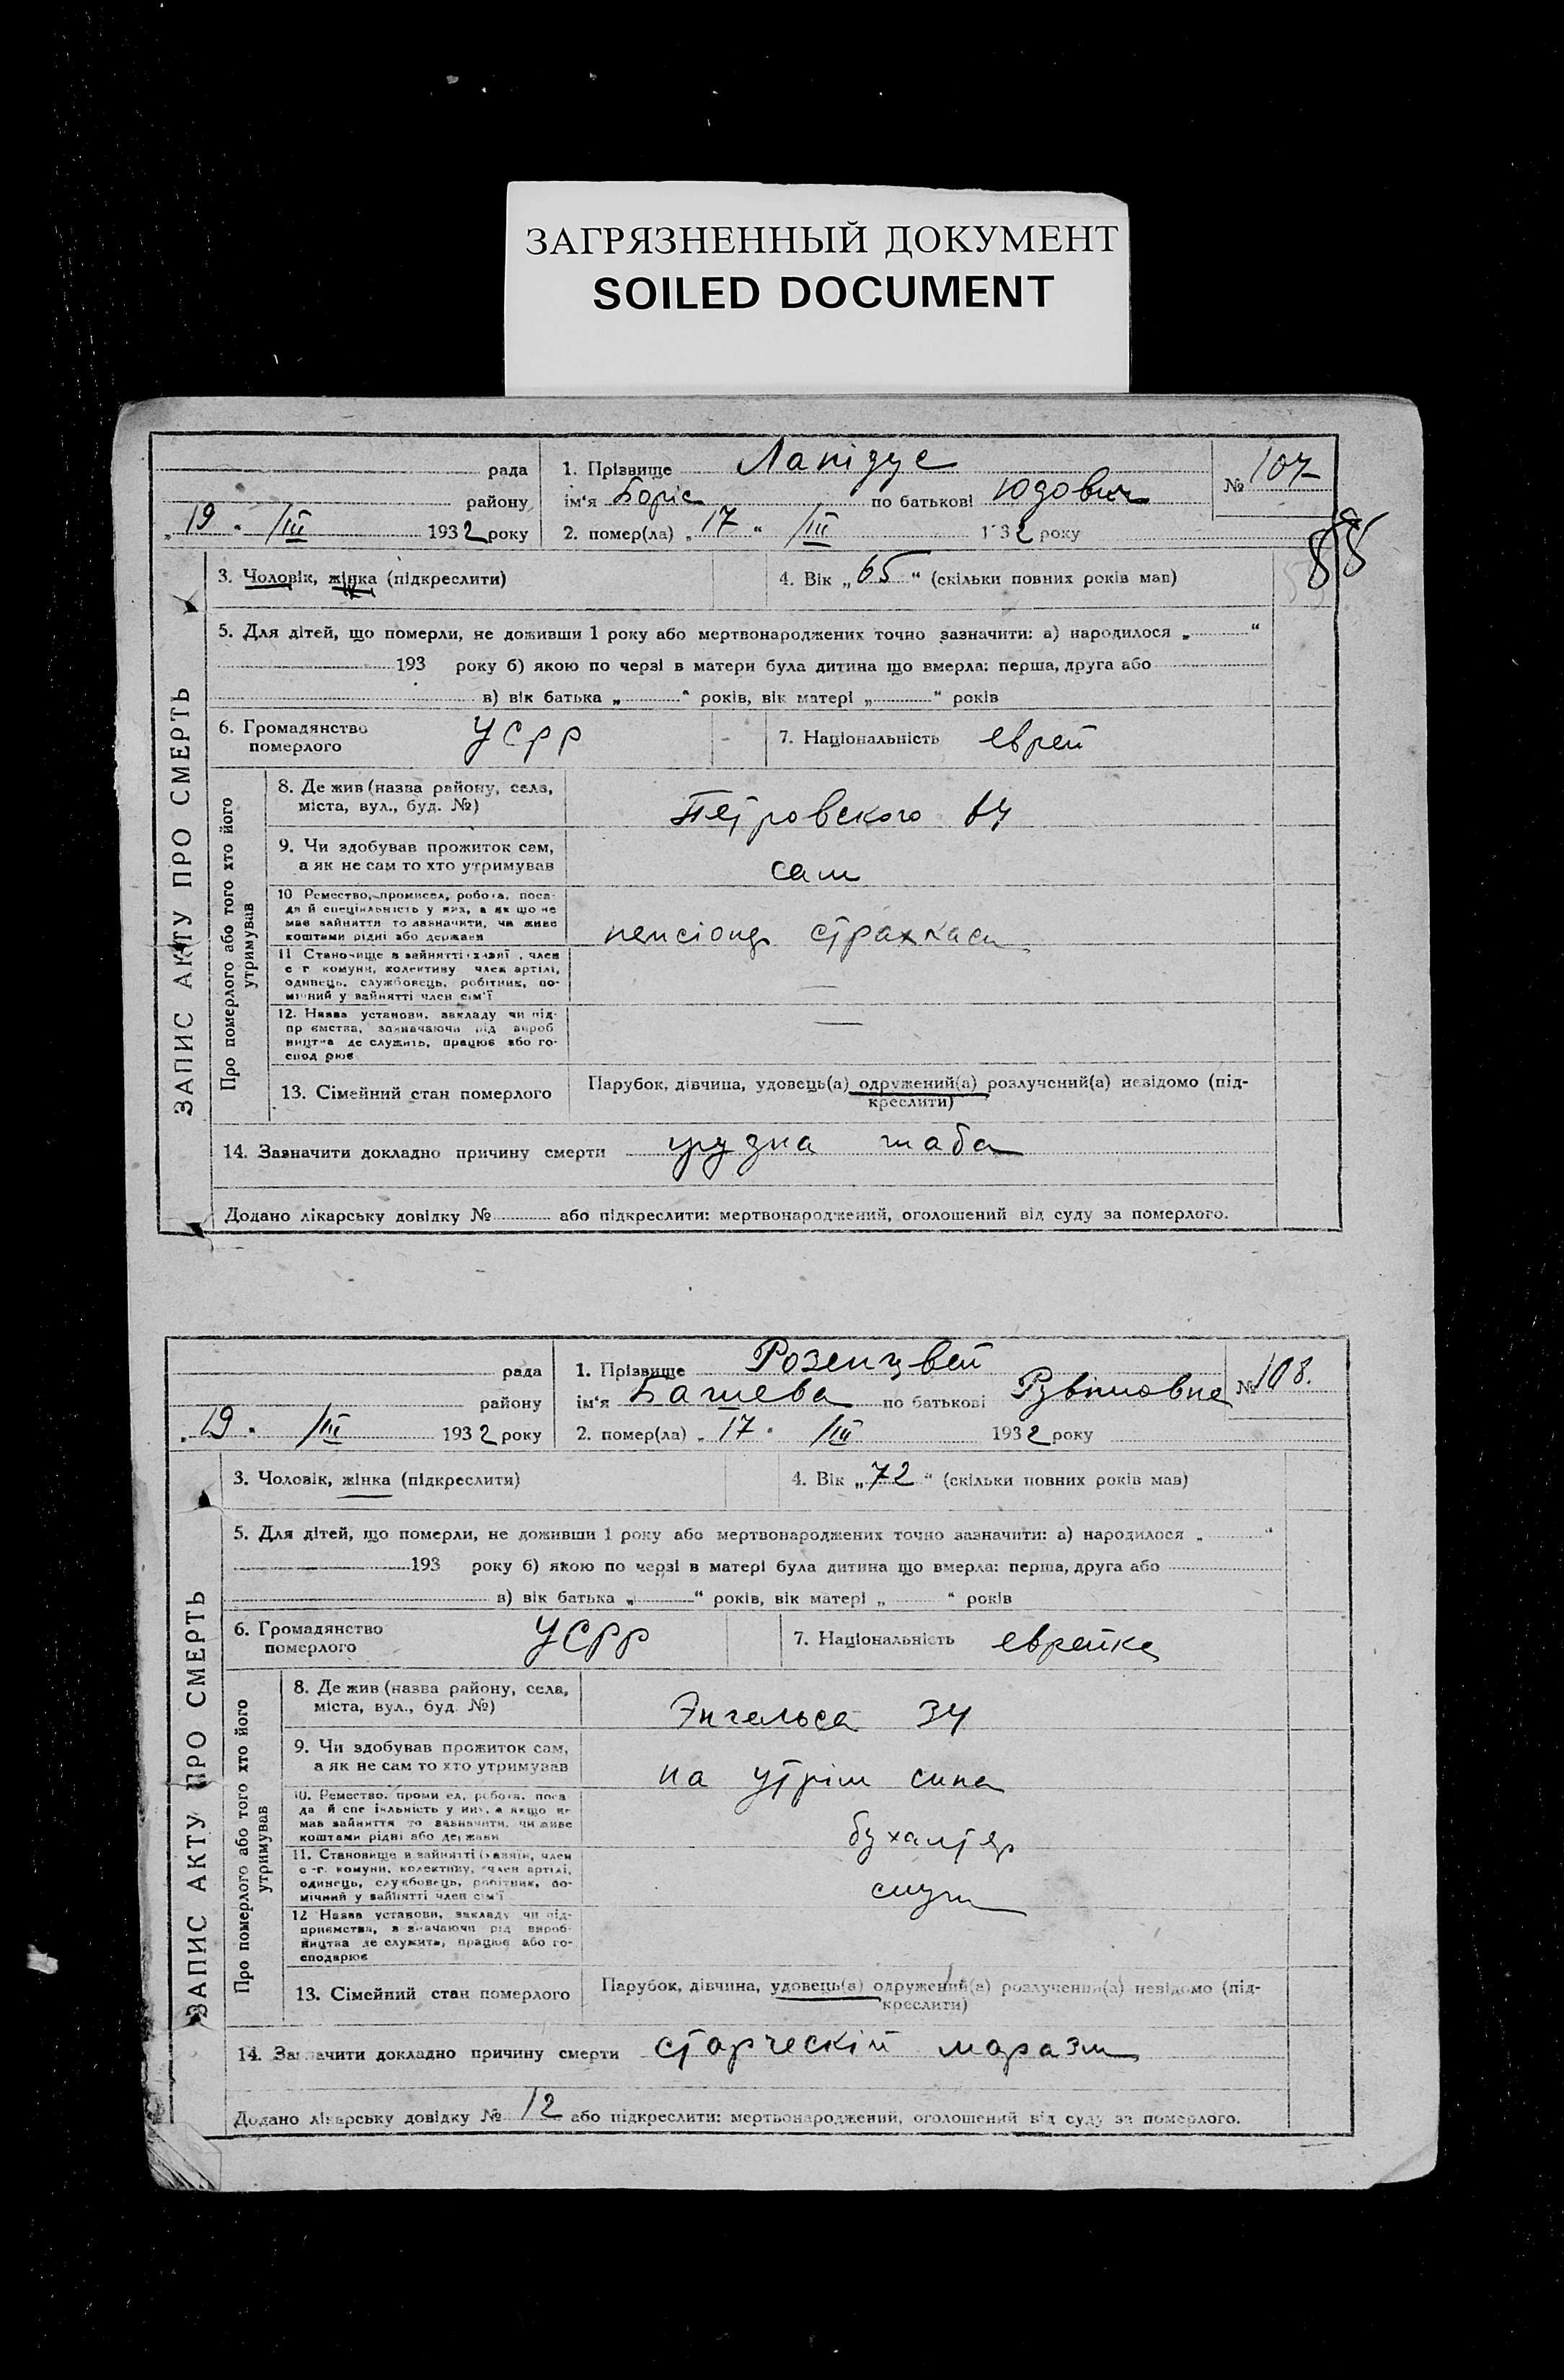 ЗАГРЯЗНЕННЫЙ ДОКУМЕНТ
SOILED DOCUMENT
рада
1. Прізвище Лапідус
№ 107
району
ім'я Боріс по батькові Юдович
„19" /III 1932 року
2. помер(ла) „17" /III 1932 року
88
ЗАПИС АКТУ ПРО СМЕРТЬ
3. Чоловік, жінка (підкреслити)
4. Вік „65" (скільки повних років мав)
5. Для дітей, що померли, не доживши 1 року або мертвонароджених точно зазначити: а) народилося „ "
193 року б) якою по черзі в матери була дитина що вмерла: перша, друга або
в) вік батька „ " років, вік матері „ " років
6. Громадянство
померлого
УСРР
7. Національність еврей
Про померлого або того хто його
утримував
8. Де жив (назва району, села,
міста, вул., буд. №)
Петровского
9. Чи здобував прожиток сам,
а як не сам то хто утримував
сам
10 Ремество, промисел, робота, поса-
да й спеціяльність у них, а як що не
мав зайняття то зазначити, чи живе
коштами рідні або держави
пенсіонер страхкаси
11 Становище в зайнятті хазяї, член
с г комуни, колективу член артілі,
одинець, службовець, робітник, по-
мічний у зайнятті член сім'ї
—
12. Назва установи, закладу чи під-
приємства, зазначаючи рід вироб
ництва де служить, працює або го-
сподарює
—
13. Сімейний стан померлого
Парубок, дівчина, удовець(а) одружений(а) розлучений(а) невідомо (під-
креслити)
14. Зазначити докладно причину смерти грудна жаба
Додано лікарську довідку № або підкреслити: мертвонароджений, оголошений від суду за померлого.
рада
1. Прізвище Розенцвей
№ 108.
району
ім'я Башева по батькові Рувімовна
„19" /III 1932 року
2. помер(ла) „17" /III 1932 року
ЗАПИС АКТУ ПРО СМЕРТЬ
3. Чоловік, жінка (підкреслити)
4. Вік „72" (скільки повних років мав)
5. Для дітей, що померли, не доживши 1 року або мертвонароджених точно зазначити: а) народилося „ "
193 року б) якою по черзі в матері була дитина що вмерла: перша, друга або
в) вік батька „ " років, вік матері „ " років
6. Громадянство
померлого
УСРР
7. Національність еврейка
Про померлого або того хто його
утримував
8. Де жив (назва району, села,
міста, вул., буд. №)
Энгельса 34
9. Чи здобував прожиток сам,
а як не сам то хто утримував
на утрім сина
10. Ремество, промисел, робота, поса
да й спеціяльність у них, а якщо не
мав зайняття то зазначити, чи живе
коштами рідні або держави
бухалтер
11. Становище в зайнятті (хазяїн, член
с.-г. комуни, колективу, член артілі,
одинець, службовець, робітник, по-
мічний у зайнятті член сім'ї
служ
12 Назва установи, закладу чи під-
приємства, зазначаючи рід вироб-
ництва де служить, працює або го-
сподарює
13. Сімейний стан померлого
Парубок, дівчина, удовець(а) одружений(а) розлучений(а) невідомо (під-
креслити)
14. Зазначити докладно причину смерти старческій маразм
Додано лікарську довідку № 12 або підкреслити: мертвонароджений, оголошений від суду за померлого.